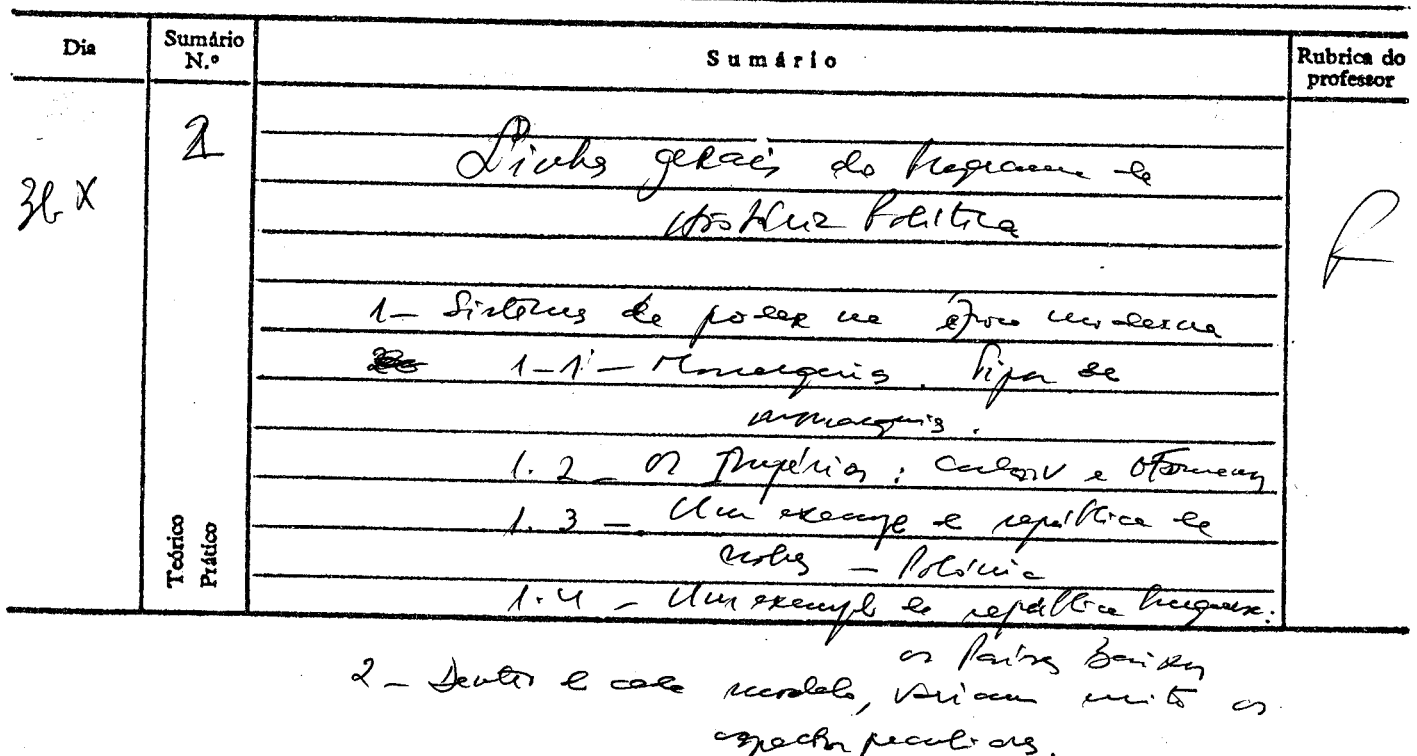 Dia
Sumário N.º
Sumário
Rubrica do professor
X
Linhas gerais do Programa de
História Política
1 - Sistemas de poder na época moderna
1-1 - Monarquias. Tipos de
monarquia.
1.2 - Os Impérios: Carlos V e Otomano
1.3 - Um exemplo de república de
nobres - Polónia
1.4 - Um exemplo de república burguesa:
os Países Baixos
2 - Dentro de cada modelo, variam muito os
aspectos peculiares.
Teórico
Prático